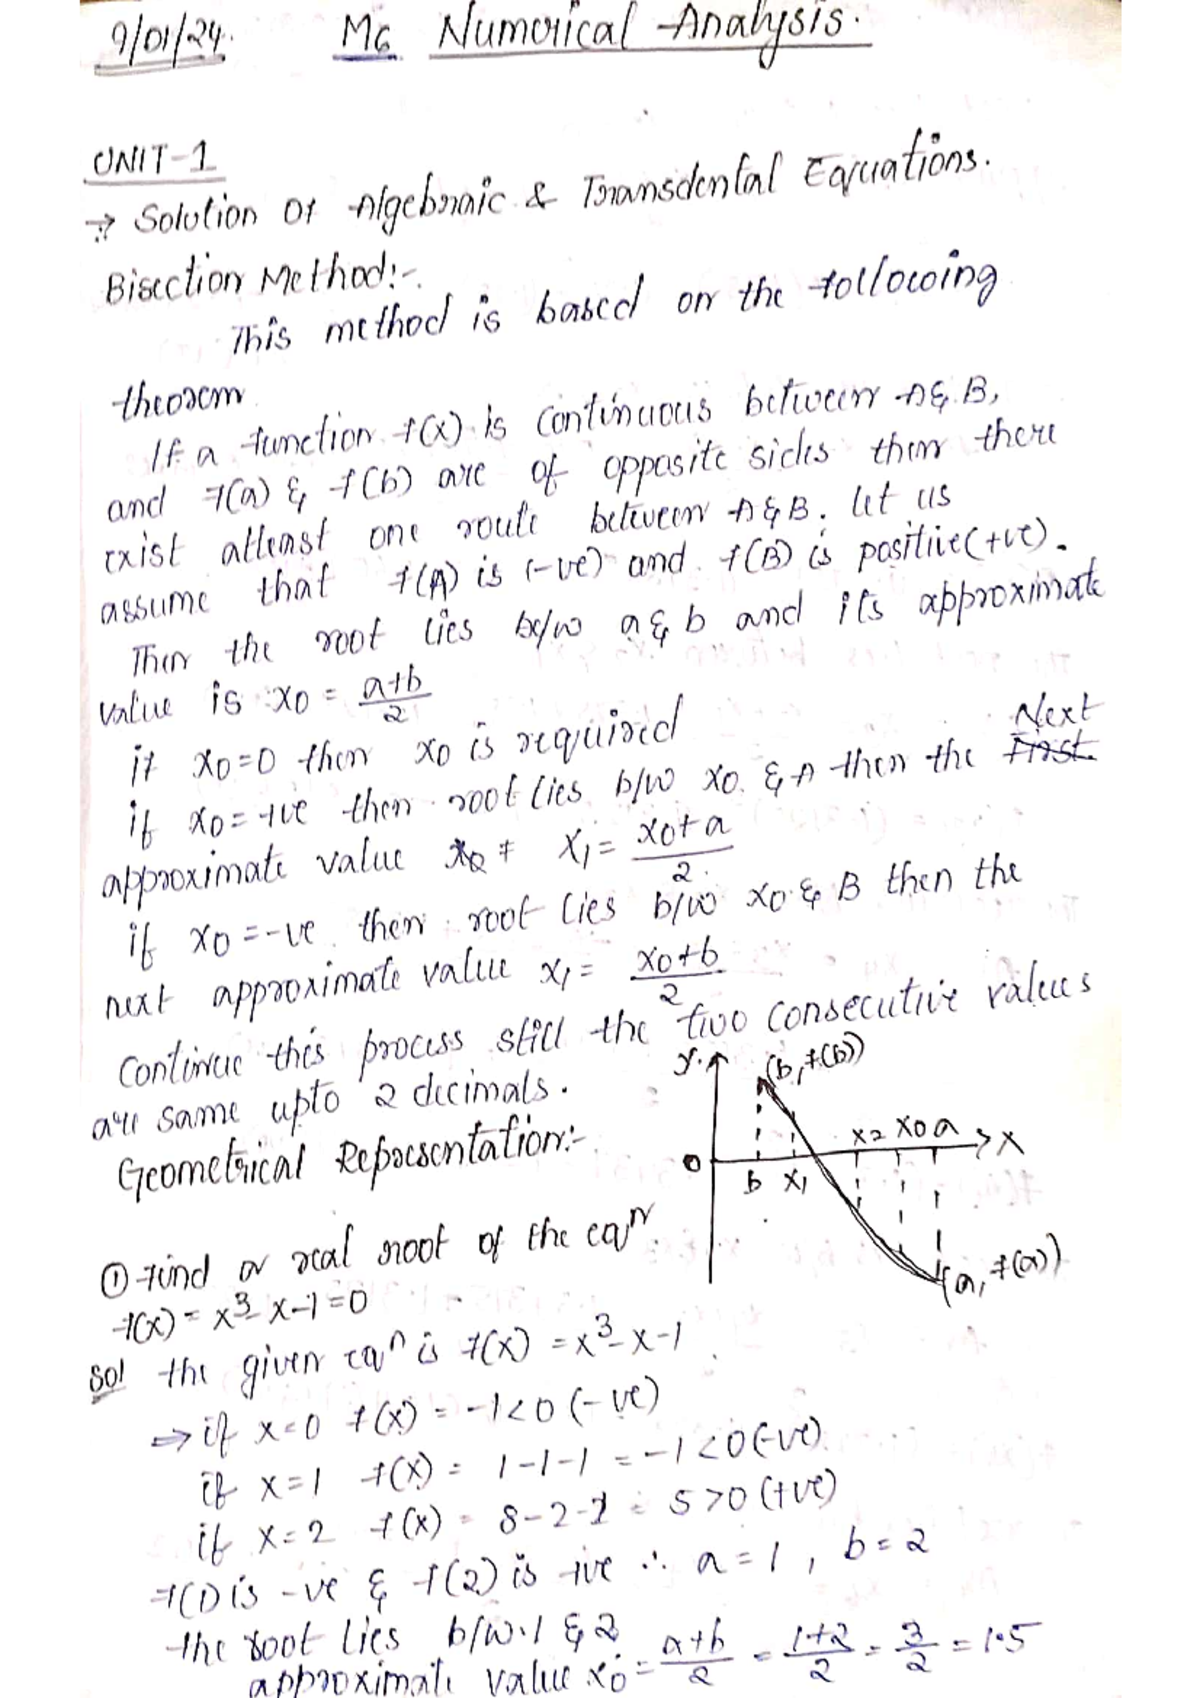 9/01/24. M6 Numerical Analysis.
UNIT-1
→ Solution Of Algebraic & Transdental Equations.
Bisection Method:-
This method is based on the following
theorem
If a function f(x) is continuous between A & B,
and f(a) & f(b) are of opposite sides then there
exist atleast one route between A & B. let us
assume that f(A) is (-ve) and f(B) is positive(+ve).
Then the root lies b/w a & b and its approximate
value is x0 = a+b/2
if x0=0 then x0 is required
Next
if x0=+ve then root lies b/w x0 & A then the First
approximate value x1 = x0+a/2
if x0=-ve then root lies b/w x0 & B then the
next approximate value x1 = x0+b/2
Continue this process still the two consecutive values
are same upto 2 decimals.
Geometrical Representation:-
y (b, f(b))
x2 x0 a x
0 b x1
(a, f(a))
① Find a real root of the eqn
f(x) = x³-x-1=0
Sol the given eqn is f(x) = x³-x-1
⇒ if x=0 f(x) = -1<0 (-ve)
if x=1 f(x) = 1-1-1 = -1<0(-ve)
if x=2 f(x) = 8-2-1 = 5>0 (+ve)
f(1) is -ve & f(2) is +ve ∴ a=1, b=2
the root lies b/w 1 & 2
approximate value x0 = a+b/2 = 1+2/2 = 3/2 = 1.5